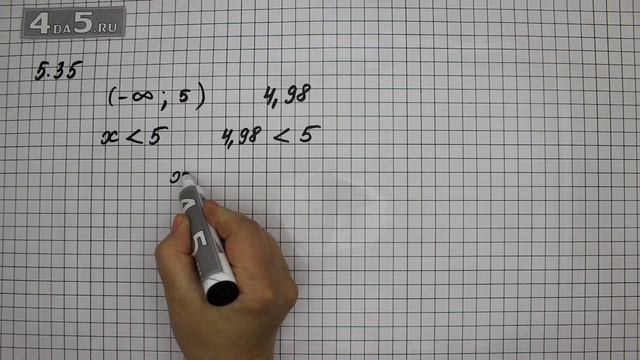 4DA5.RU
5.35
(-∞; 5) 4,98
x < 5 4,98 < 5
x